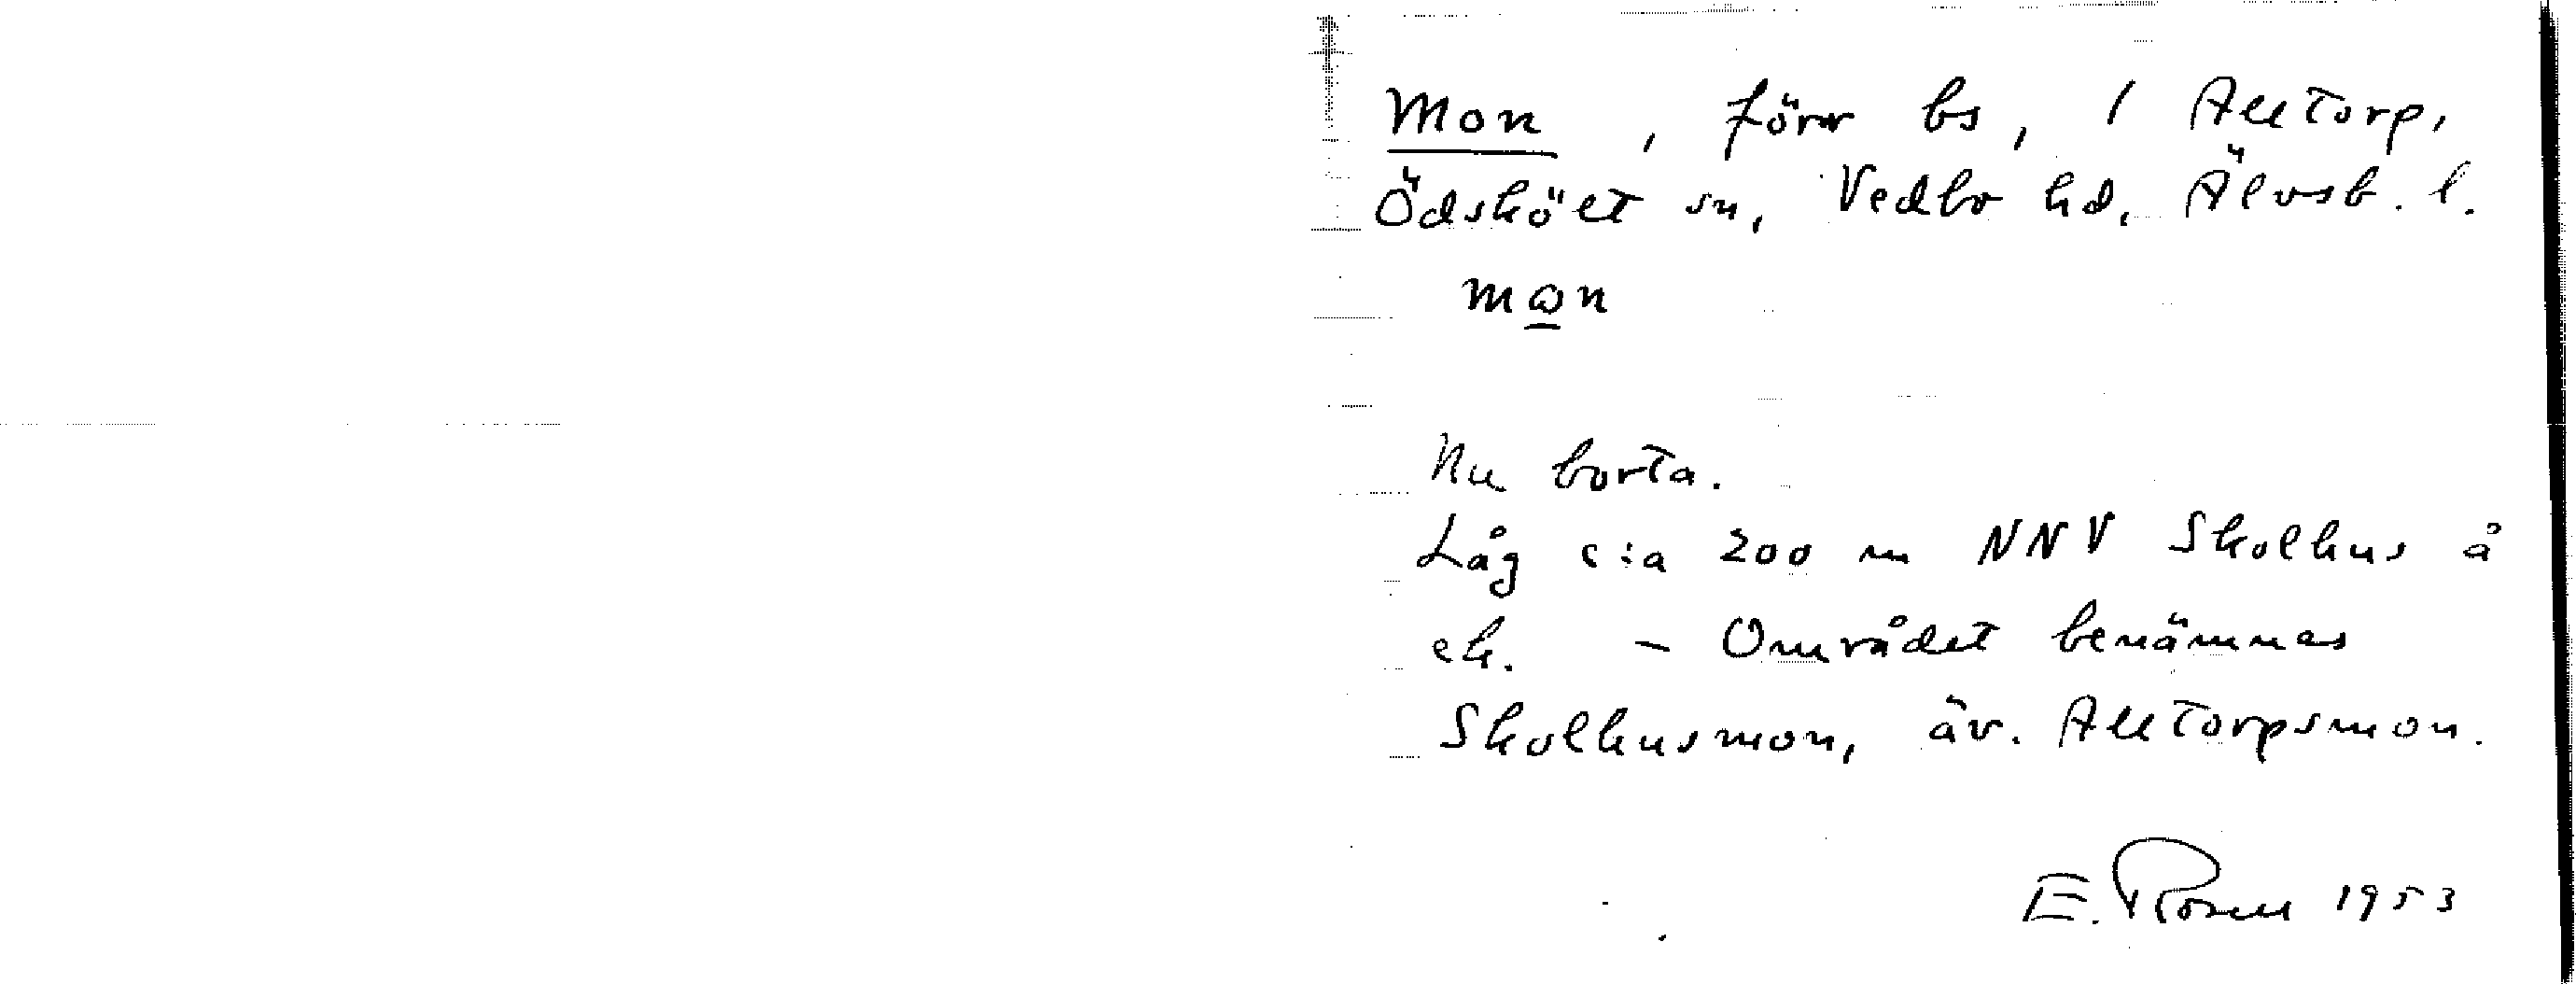 Mon, förr bs, 1 Alltorp,
Ödskölt sn, Vedbo hd, Älvsb. l.
mon
Nu borta.
Låg c:a 200 m NNV Skolhus å
ek. – Området benämnes
Skolhusmon, äv. Alltorpsmon.
E. Rosell 1953